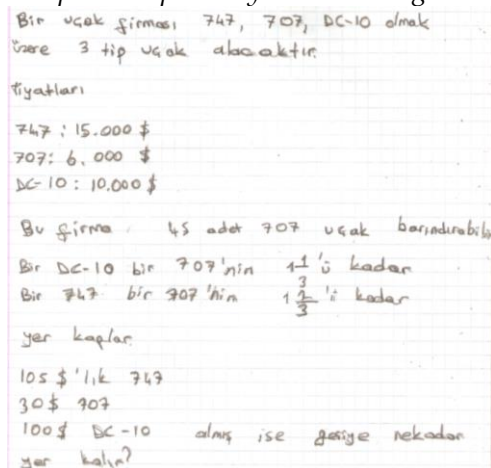 Bir uçak firması 747, 707, DC-10 olmak
üzere 3 tip uçak alacaktır.
fiyatları
747 : 15.000 $
707: 6.000 $
DC-10 : 10.000 $
Bu firma 45 adet 707 uçak barındırabilir
Bir DC-10 bir 707'nin 1 1/3 'ü kadar
Bir 747 bir 707'nin 1 2/3 'ü kadar
yer kaplar.
105 $ 'lık 747
30$ 707
100$ DC-10 almış ise geriye nekadar
yer kalır?